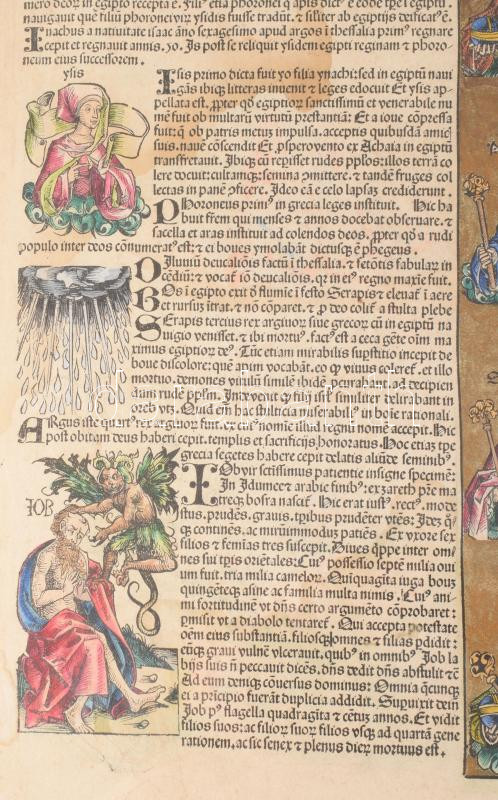 mero deoꝝ in egipto recepta ē.
Inachus a natiuitate isaac āno sexagesimo apud argos ī thessalia primꝰ regnare
cepit et regnauit annis. 50. Is post se reliquit ysidem egipti reginam ⁊ phoro-
neum eius successorem.
ysis
Isis primo dicta fuit yo filia ynachi: sed in egiptū naui
gās ibiqꝫ litteras inuenit ⁊ leges edocuit Et ysis ap-
pellata est. ꝓpter qð egiptioꝝ sanctissimū et venerabile nu
mē fuit ob multarū virtutū prestantiā: Et a ioue cōpressa
fuit: q̄ ob patris metꝰ impulsa. acceptis quibusdā amic̄
suis. nauē cōscendit Et ꝓspero vento ex Achaia in egiptū
transfretauit. Ibiqꝫ cū repisset rudes ppłos: illos terrā co
lere docuit: cultamqꝫ; semina ꝯmittere. ⁊ tandē fruges col
lectas in panē ꝯficere. Ideo eā e celo lapsaꝫ crediderunt.
Phoroneus primꝰ in grecia leges instituit. Hic ha
buit frem qui menses ⁊ annos docebat obseruare. ⁊
sacella et aras instituit ad colendos deos. ꝓpter qð a rudi
populo inter deos cōnumeratꝰ est: ⁊ ei boues ymolabāt dictusqꝫ ē phegeus.
Diluuiū deucalidis factū ī thessalia. ⁊ fetōtis fabulaꝝ in
cēdiū: ⁊ vocat̄ iō deucaliōis. qꝛ in eiꝰ regno maxie fuit.
Bos ī egipto exit ð flumīe ī festo Serapis: ⁊ eleuat̄ ī aere
et rursuꝫ itrat. ⁊ nō cōparet. ⁊ ꝓ deo colit̄ a stulta plebe
Serapis tercius rex argiuoꝝ siue grecoꝝ cū in egiptū na
uigio venisset. ⁊ ibi mortuꝰ. factꝰ est a ceca gēte oīm ma
ximus egiptioꝝ deꝰ. Tūc etiam mirabilis supstitio incepit de
boue discolore: quē apim vocabāt. eo qꝫ viuus coleret̄. et illo
mortuo. demones vitulū similē ibidē ꝓcurabant ad decipien
dum rudē ppłm. In
oreb. Quid em̄ hac stulticia miserabiliꝰ in hoīe rationali.
ARgus iste quartꝰ rex argiuoꝝ fuit. ex cuiꝰ nomīe illud regnū nomē accepit. Hic
post obitum deus haberi cepit. templis et sacrificijs honoratus. Hoc etiaꝫ tpe
grecia segetes habere cepit delatis aliūde seminibꝰ.
IOB
IObvir sctissimus patientie insigne specimē:
In Idumee ⁊ arabie finibꝰ: ex ȝareth pr̄e ma
treqꝫ bosra nascit̄. Hic erat iustꝰ. rectꝰ. mode
stus. prudēs. grauis. tpibus prudēter vtēs: Idēqꝫ
qꝫ continēs. ac mirūimmoduꝫ patiēs. Ex vxore sex
filios ⁊ femias tres suscepit. Diues qppe inter om̄i
nes sui tpis oriētales: Cuiꝰ possessio septē milia oui
um fuit. tria milia cameloꝝ. Quīquagīta iuga bouꝫ
quingēteqꝫ asine ac familia multa nimis. Cuiꝰ ani
mi fortitudinē vt dn̄s certo argumēto cōprobaret:
pmisit vt a diabolo tentaret̄. Qui accepta potestate
oēm eius substantiā. filiosqꝫ omnes ⁊ filias pdidit:
eūqꝫ graui vulnē vlcerauit. quibꝰ in omnibꝰ Iob la
bijs suis n̄ peccauit dicēs. dn̄s dedit dn̄s abstulit ⁊c̄
Ad eum deniqꝫ cōuersus dominus: Omnia qcunqꝫ
ei a prīcipio fuerāt duplicia addidit. Supuixit deīn
Iob pꝰ flagella quadragīta ⁊ cētuꝫ annos. Et vidit
filios suos: ac filioꝝ suoꝝ filios vsqꝫ ad quartā gene
rationem. ac sic senex ⁊ plenus dieꝝ mortuus est.